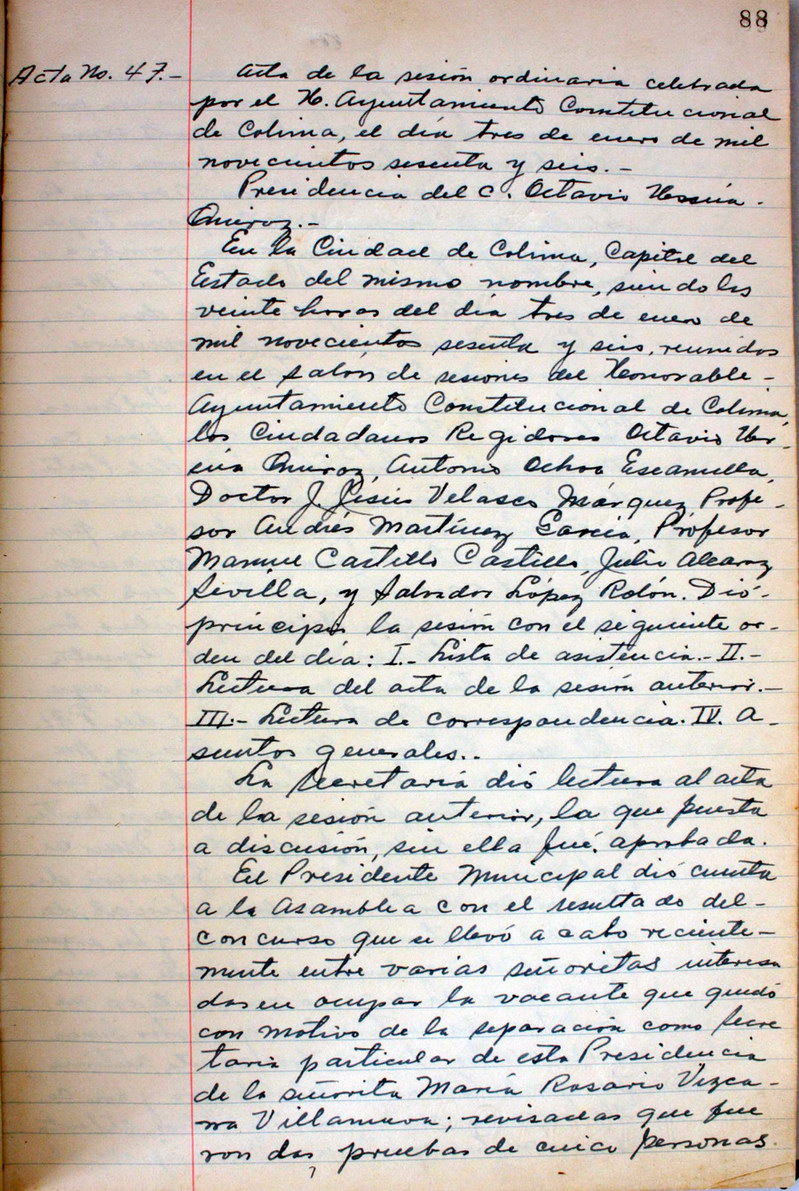 88
Acta No. 47.-
Acta de la sesión ordinaria celebrada
por el H. Ayuntamiento Constitucional
de Colima, el día tres de enero de mil
novecientos sesenta y seis.-
Presidencia del C. Octavio Ursúa
Quiroz.-
En la Ciudad de Colima, Capital del
Estado del mismo nombre, siendo las
veinte horas del día tres de enero de
mil novecientos sesenta y seis, reunidos
en el salón de sesiones del Honorable-
Ayuntamiento Constitucional de Colima,
los Ciudadanos Regidores Octavio Ur-
súa Quiroz, Antonio Ochoa Escamilla,
Doctor J. Jesús Velasco Márquez, Profe-
sor Andrés Martínez García, Profesor
Manuel Castillo Castillo, Julio Alcaraz
Sevilla, y Salvador López Rolón. Dió-
principio la sesión con el siguiente or-
den del día: I.- Lista de asistencia.- II.-
Lectura del acta de la sesión anterior.-
III.- Lectura de correspondencia. IV. A-
suntos generales..
La Secretaría dió lectura al acta
de la sesión anterior, la que puesta
a discusión, sin ella fué, aprobada.
El Presidente Municipal dió cuenta
a la Asamblea con el resultado del-
concurso que se llevó a cabo reciente-
mente entre varias señoritas interesa
das en ocupar la vacante que quedó
con motivo de la separación como Secre
taria particular de esta Presidencia
de la señorita María Rosario Vizca-
no Villanueva; revisadas que fue
ron das pruebas de cinco personas